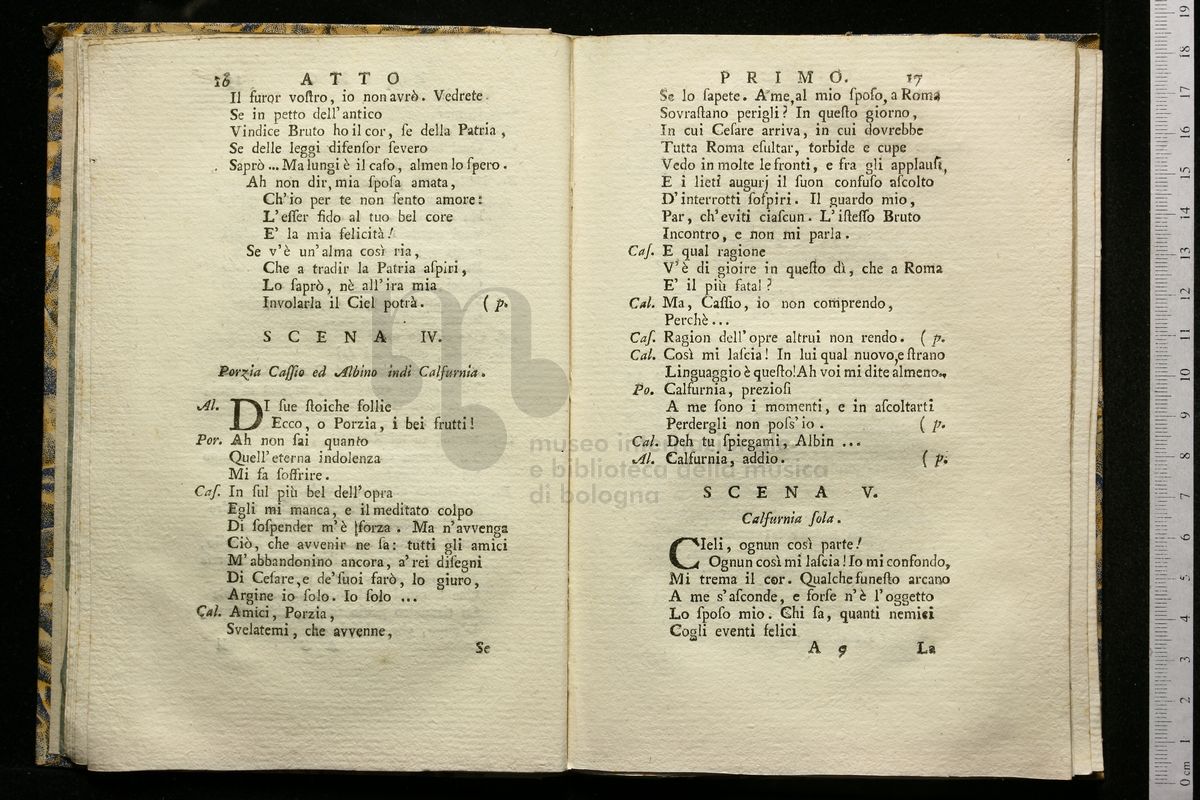 16 ATTO
Il furor voſtro, io non avrò. Vedrete
Se in petto dell'antico
Vindice Bruto ho il cor, ſe della Patria,
Se delle leggi difenſor ſevero
Saprò ... Ma lungi è il caſo, almen lo ſpero.
Ah non dir, mia ſpoſa amata,
Ch'io per te non ſento amore:
L'eſſer fido al tuo bel core
E' la mia felicità!
Se v'è un'alma così ria,
Che a tradir la Patria aſpiri,
Lo ſaprò, nè all'ira mia
Involarla il Ciel potrà. (p.
SCENA IV.
Porzia Caſſio ed Albino indi Calfurnia.
Al. DI ſue ſtoiche follie
Ecco, o Porzia, i bei frutti!
Por. Ah non ſai quanto
Quell'eterna indolenza
Mi fa ſoffrire.
Caſ. In ſul più bel dell'opra
Egli mi manca, e il meditato colpo
Di ſoſpender m'è forza. Ma n'avvenga
Ciò, che avvenir ne ſa: tutti gli amici
M'abbandonino ancora, a'rei diſegni
Di Ceſare, e de'ſuoi farò, lo giuro,
Argine io ſolo. Io ſolo ...
Cal. Amici, Porzia,
Svelatemi, che avvenne,
Se
PRIMO. 17
Se lo ſapete. A me, al mio ſpoſo, a Roma
Sovraſtano perigli? In queſto giorno,
In cui Ceſare arriva, in cui dovrebbe
Tutta Roma eſultar, torbide e cupe
Vedo in molte le fronti, e fra gli applauſi,
E i lieti augurj il ſuon confuſo aſcolto
D'interrotti ſoſpiri. Il guardo mio,
Par, ch'eviti ciaſcun. L'iſteſſo Bruto
Incontro, e non mi parla.
Caſ. E qual ragione
V'è di gioire in queſto dì, che a Roma
E' il più fatal?
Cal. Ma, Caſſio, io non comprendo,
Perchè...
Caſ. Ragion dell'opre altrui non rendo. (p.
Cal. Così mi laſcia! In lui qual nuovo, e ſtrano
Linguaggio è queſto! Ah voi mi dite almeno..
Po. Calfurnia, prezioſi
A me ſono i momenti, e in aſcoltarti
Perdergli non poſs'io. (p.
Cal. Deh tu ſpiegami, Albin ...
Al. Calfurnia, addio. (p.
SCENA V.
Calfurnia ſola.
CIeli, ognun così parte!
Ognun così mi laſcia! Io mi confondo,
Mi trema il cor. Qualche funeſto arcano
A me s'aſconde, e forſe n'è l'oggetto
Lo ſpoſo mio. Chi ſa, quanti nemici
Cogli eventi felici
A 9 La
museo in
e biblioteca della musica
di bologna
0 cm 1 2 3 4 5 6 7 8 9 10 11 12 13 14 15 16 17 18 19